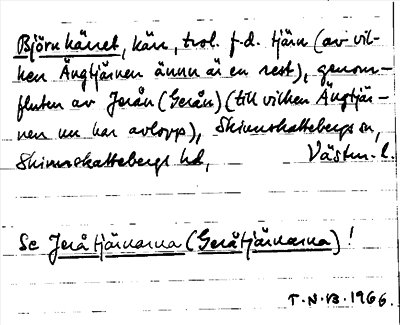 Björnkärret, kärr, trol. f.d. tjärn (av vil-
ken Ängtjärnen ännu är en rest), genom-
fluten av Jerån (Gerån) (till vilken Ängtjär-
nen nu har avlopp), Skinnskattebergs sn,
Skinnskattebergs hd, Västm. l.
Se Jeråtjärnarna (Geråtjärnarna)!
T.N.B. 1966.